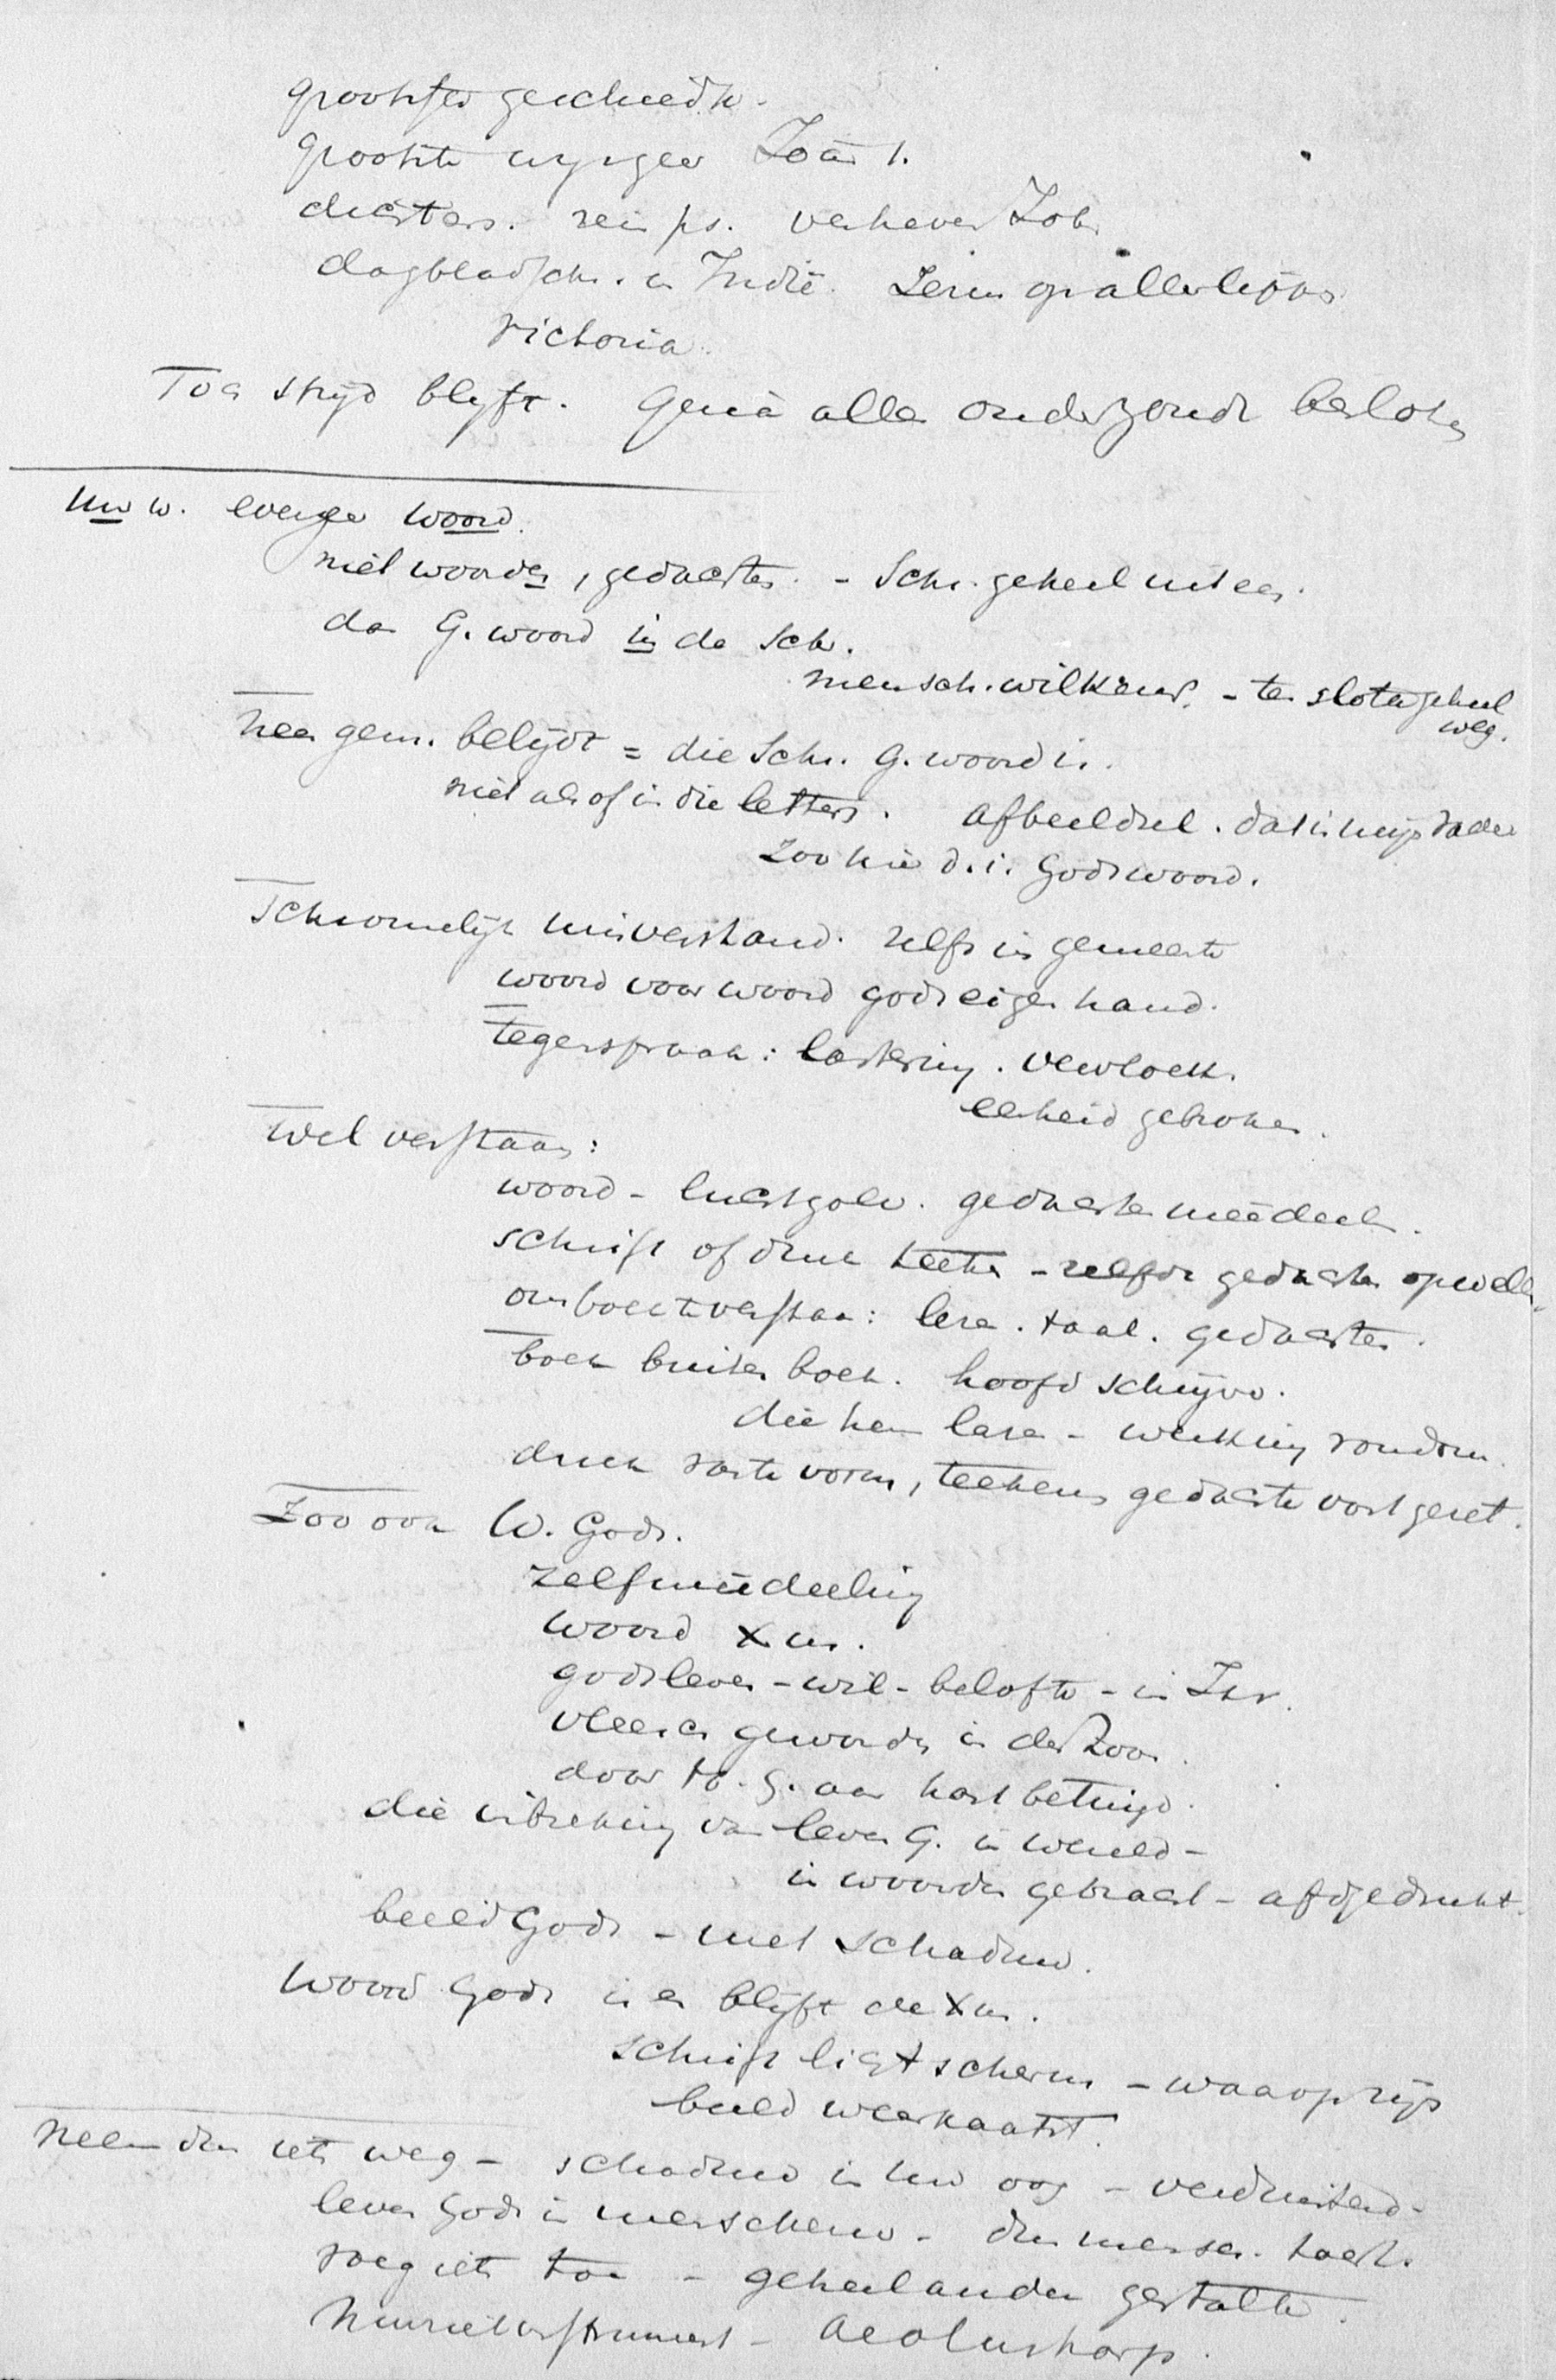 grootste geschiedk.
grootste wijsgeer Joan 1.
dichters. rein ps. verheven Job
dagbladschr. in Indië.
Victoria.
Toch strijd blyft. alle onderzoek
Uw w. eeuwige woord.
niet woorden, gedachten. - Schr. geheel uiteen.
dan G. woord in de Schr.
mensch. willkeur. - ten slotte geheel
weg.
Neen gem. belydt = die Schr. G. woord is.
niet alsof in die letters. afbeeldsel. dat is mijn vader
zoo hier d. i. Gods woord.
Schromelijk misverstand. zelfs in gemeente
woord voor woord Gods eigen hand.
tegenspraak: lastering. vervloekt.
eenheid gebroken.
Wel verstaan:
woord - luchtgolv. gedachten meedeelen.
schrift of druk teeken - zelfde gedachten opwellen.
om boek te verstaan: lezen. taal. gedachten.
boek buiten boek. hoofd schrijver.
die hem lazen - werking rondom.
druk vaste vorm, teekens gedachte vastgezet.
Zoo ook W. Gods.
zelfmeedeeling
woord Xus.
Gods leven - wil - belofte - in Isr.
vleesch geworden in den Zoon.
door H. G. aan hart betuigd.
die intreking van leven G. in wereld -
in woorden gebracht - afgedrukt.
beeld Gods - met schaduw.
Woord Gods is en blijft de Xus.
schrift licht scherm - waarop zijn
beeld weerkaatst.
Neem dan iets weg - schaduw in uw oog - verduisterd -
leven Gods in menschenw. - dan mensch. hoekt.
voeg iets toe - geheel andere gestalte.
Muziekinstrument - Aeolusharp.